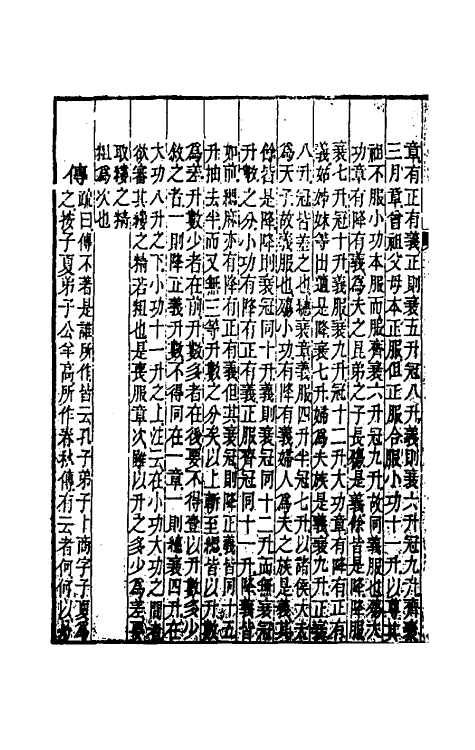 章有正有義正則衰五升冠八升義則衰六升冠九升齊衰
三月章曾祖父母本正服但正服合服小功十一升以尊其
祖不服小功本服而服齊衰六升冠九升故同義服也殤大
功章有降有義爲夫之昆弟之子長殤是義餘皆是降降服
衰七升冠十升義服衰九升冠十二升大功章有降有正有
義姑姊妹等出適是降衰七升婦爲夫族是義衰九升正衰
八升冠皆差之也繐衰章義服四升半冠七升以諸侯大夫
爲天子故義服也殤小功有降有義婦人爲夫之族是義其
餘皆是降降則衰冠同十升義則衰冠同十二升而無衰冠
升數之分小功有降有正有義正服齊冠同十一升降義皆
如前緦麻亦有降有正有義但其衰冠則降正義皆同十五
升抽去半而又無三等升數之分矣以上斬至緦皆以升數
爲差升數少者在前升數多者在後要不得登以升數多少
敘之者一則降正義升數不得同在一章一則繐衰四升在
大功八升之下小功十一升之上注云在小功大功之間者
欲審其縷之精若粗也是喪服章次雖以升之多少爲差要
取縷之精
粗爲次也
傳疏曰傳不著是誰所作皆云孔子弟子卜商字子夏爲
之按子夏弟子公羊高所作春秋傳有云者何何以